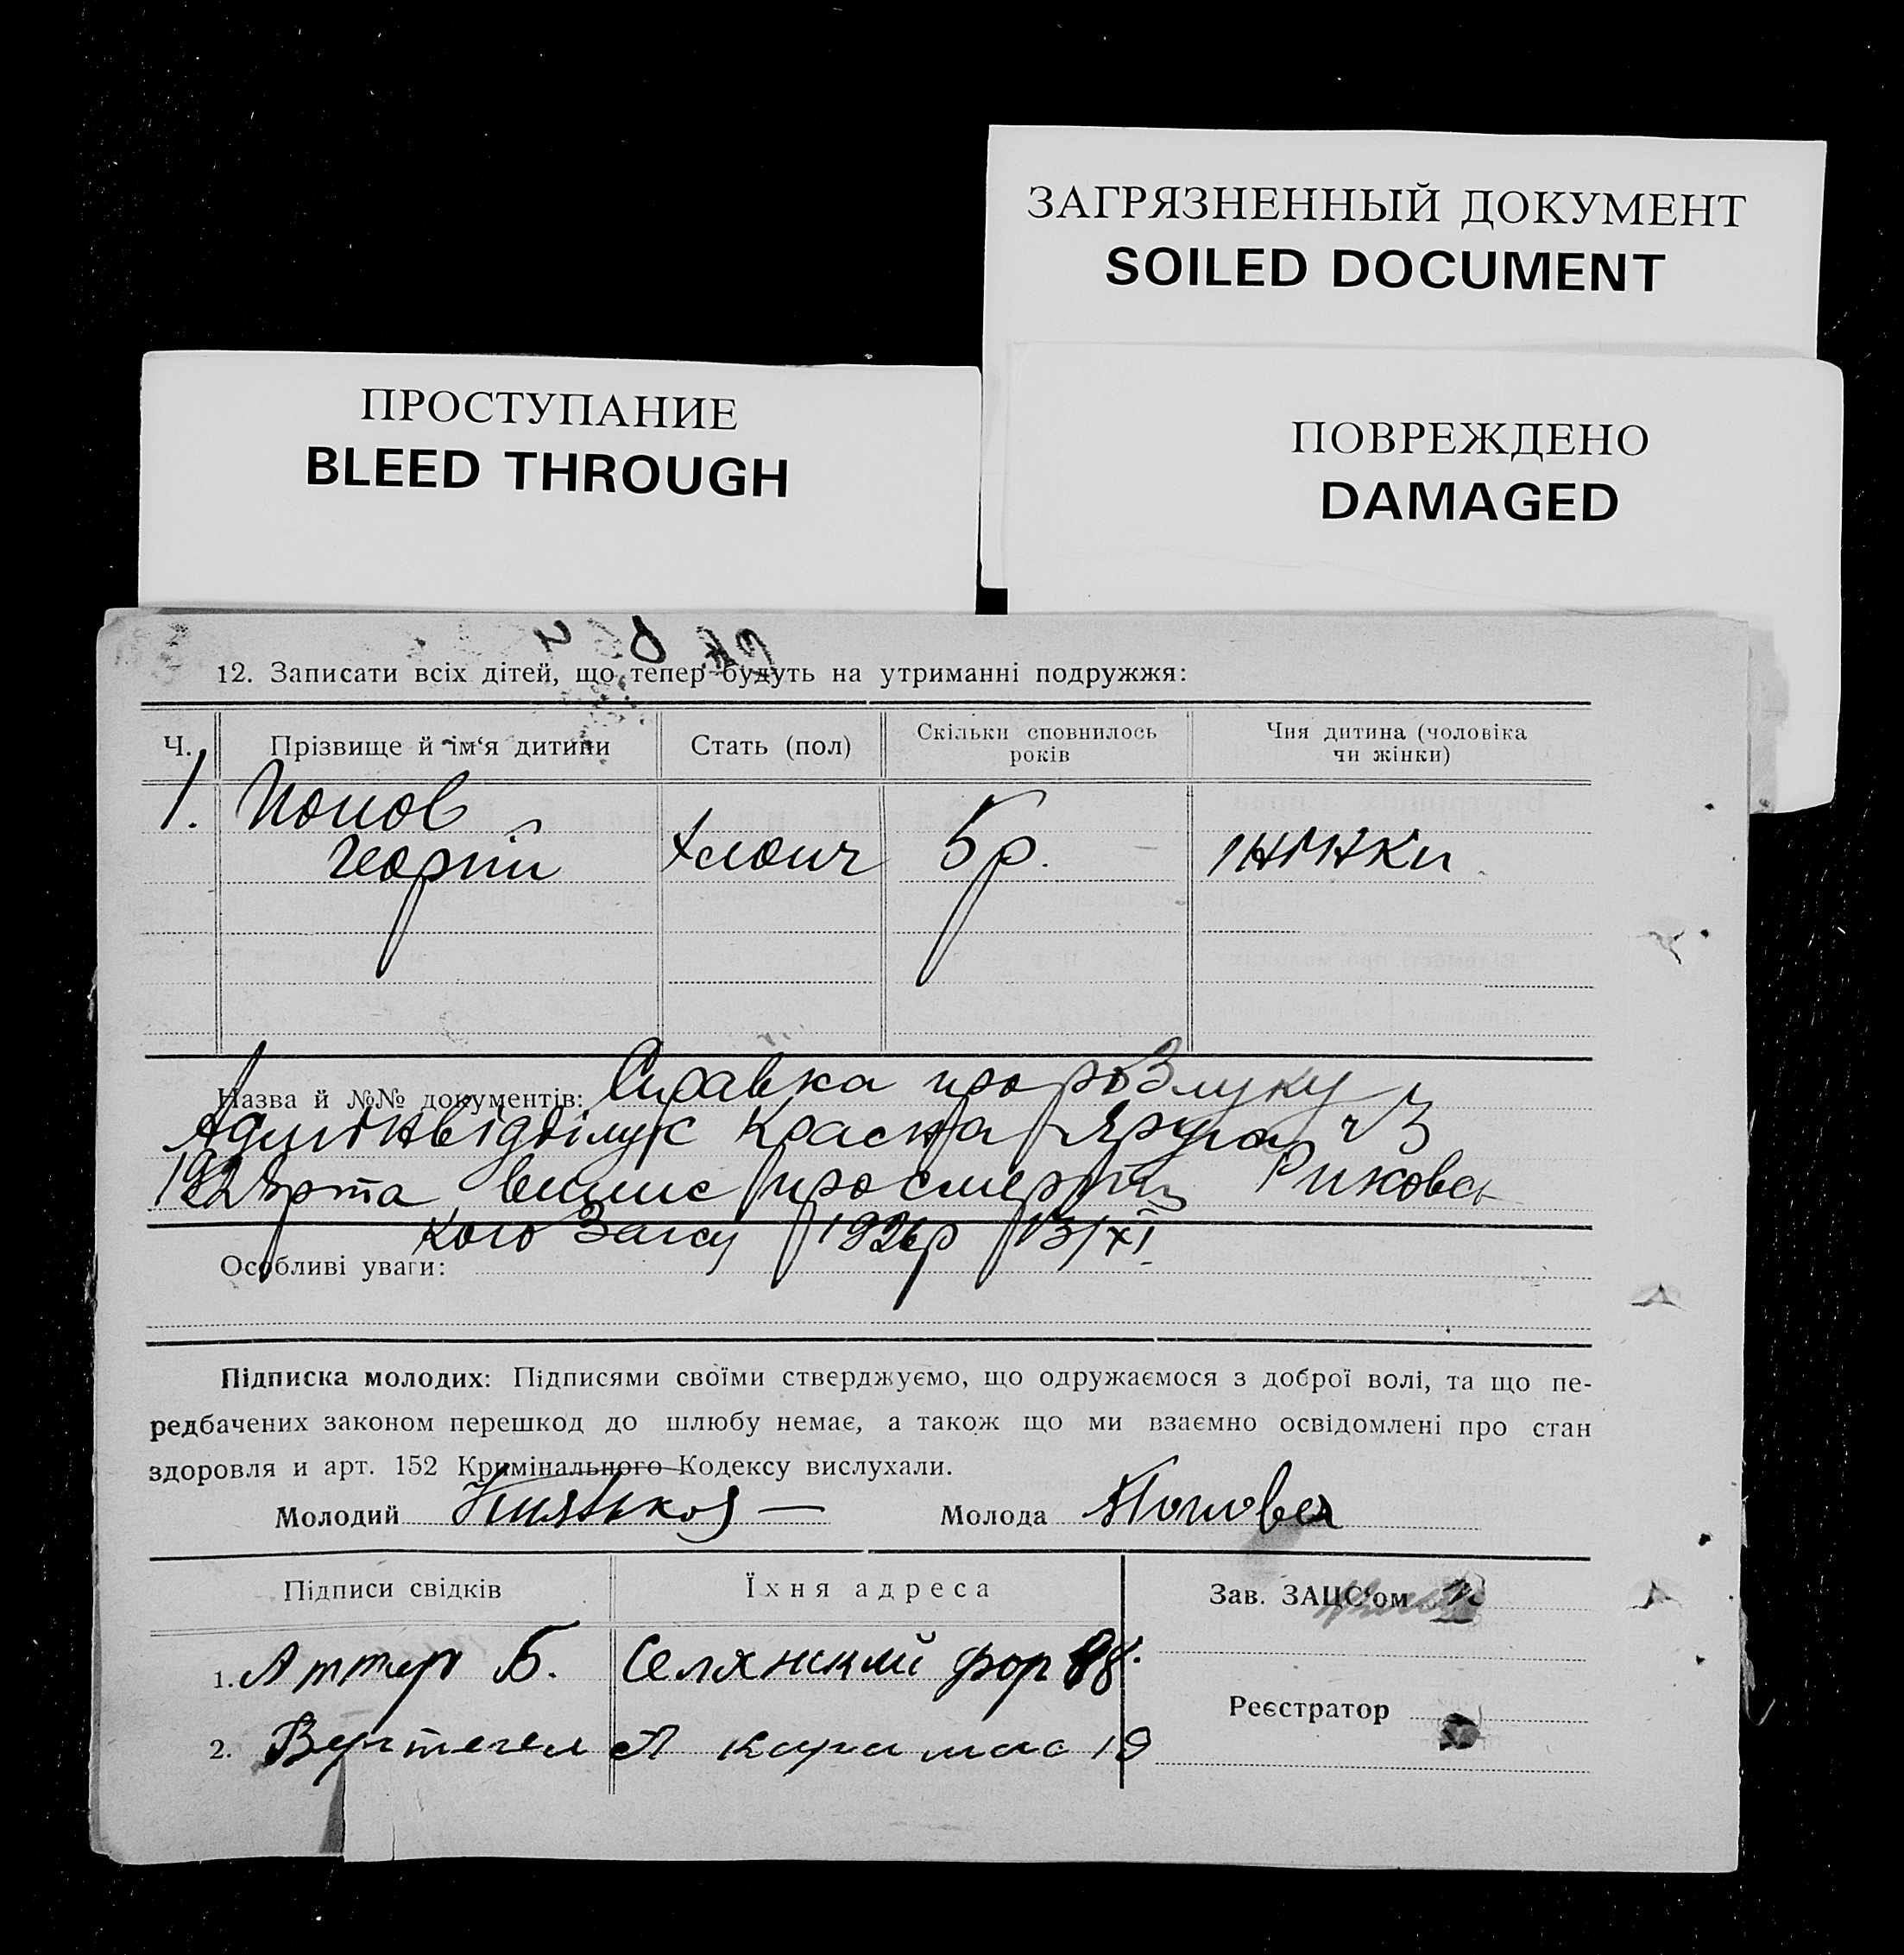 ЗАГРЯЗНЕННЫЙ ДОКУМЕНТ
SOILED DOCUMENT
ПРОСТУПАНИЕ
BLEED THROUGH
ПОВРЕЖДЕНО
DAMAGED
12. Записати всіх дітей, що тепер будуть на утриманні подружжя:
Ч.
Прізвище й ім‘я дитини
Стать (пол)
Скільки сповнилось
років
Чия дитина (чоловіка
чи жінки)
1. Попов
Георгій хлопч 5 р. жінки
Назва й №№ документів: Справка про розлуку
Адмінвідділу Красна Яруга ч 3
випис про смерть Риковсь
кого Загсу 1926р 13/XI
Особливі уваги:
Підписка молодих: Підписями своїми стверджуємо, що одружаємося з доброї волі, та що пе-
редбачених законом перешкод до шлюбу немає, а також що ми взаємно освідомлені про стан
здоровля и арт. 152 Кримінального Кодексу вислухали.
Молодий
Молода Попова
Підписи свідків
Їхня адреса
Зав. ЗАЦС‘ом
1. Б. Селянский
Реєстратор
2. А 19